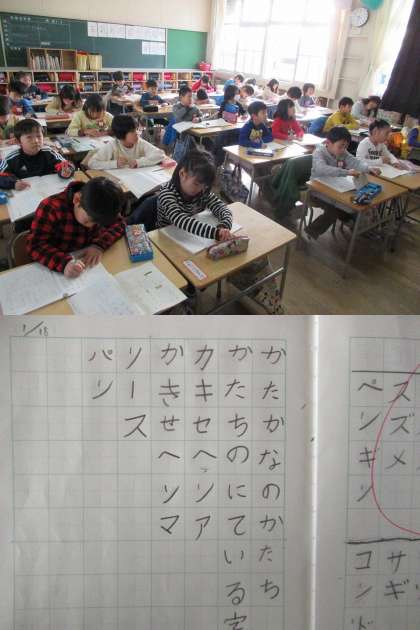 スズメ
サギ
ペンギン
コンド
1/18
かたかなのかたち
かたちのにている字
カキセヘリア
かきせへソマ
ソース
パリ